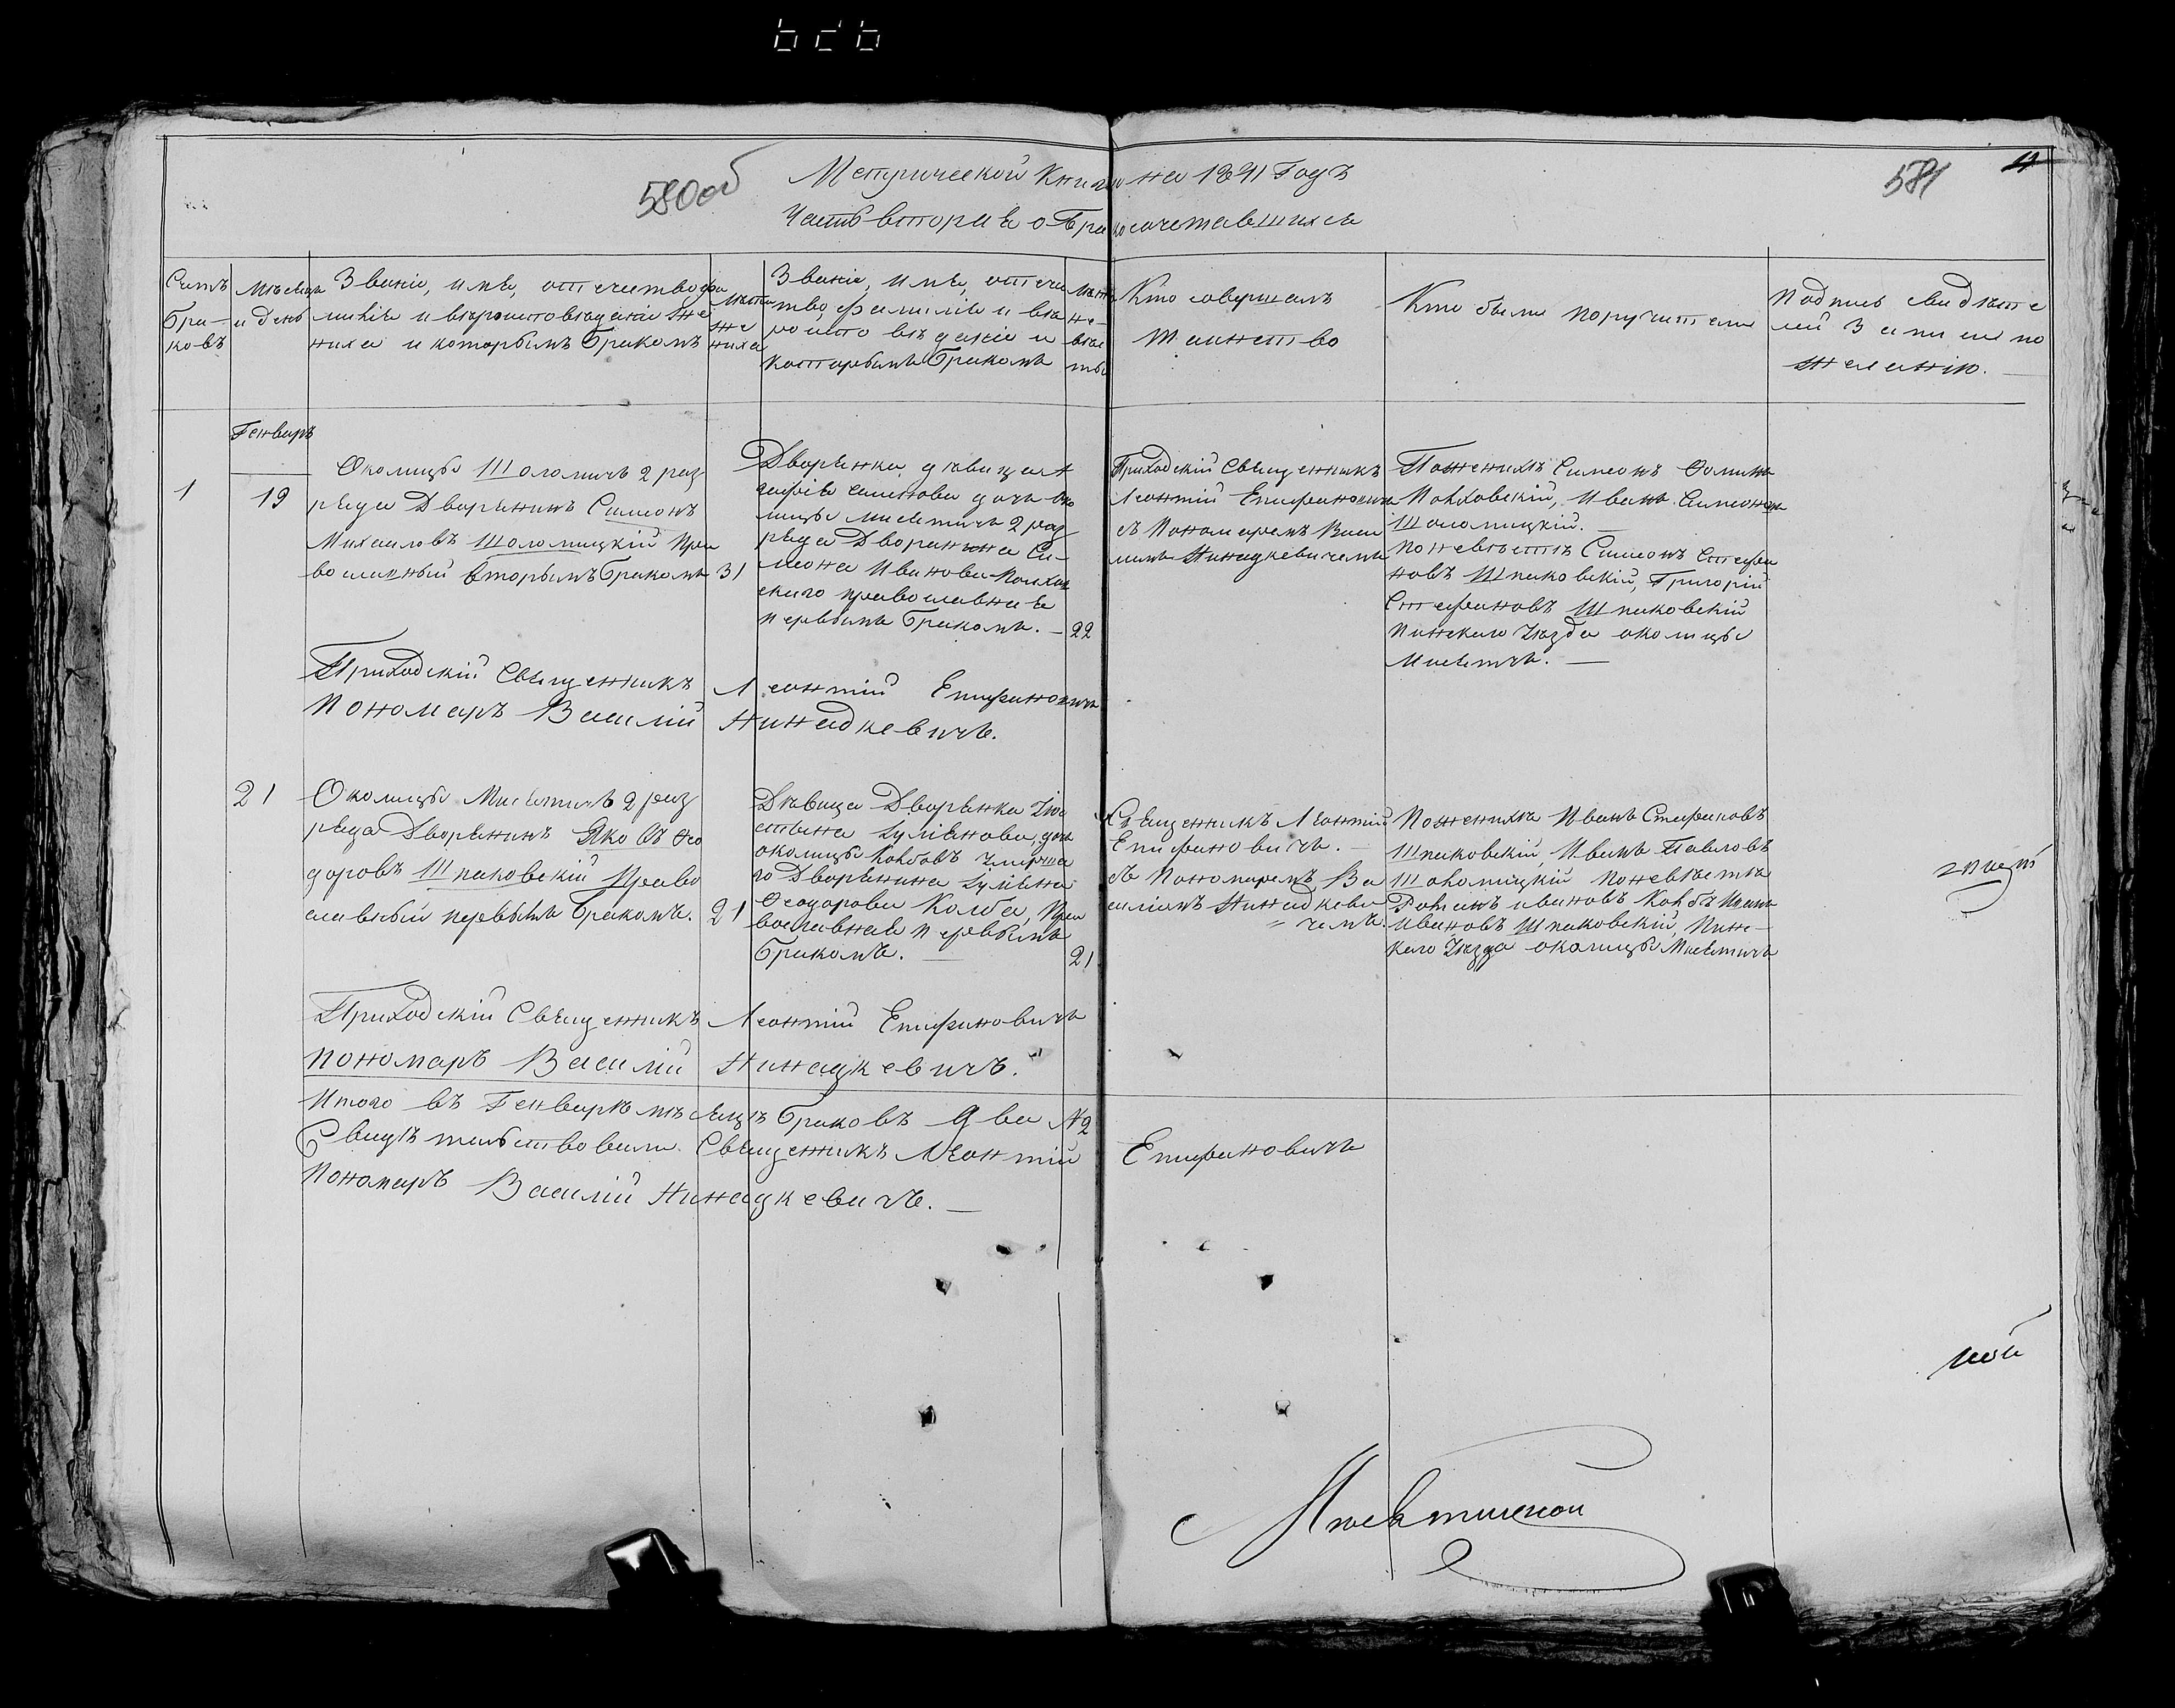 580об
Метрической Книги на 1841 Годъ
581
Часть вторая о Бракосочетавшихся
Счетъ
Бра-
ковъ
Мѣсяцъ
и день
Званіе, имя, отечество фа
милія и вѣроисповѣданіе же
ниха и которымъ бракомъ
Лѣта
же
ниха
Званіе, имя, отече
тво, фамилія и вѣ
роиспо вѣданіе и
которымъ Бракомъ
Лѣта
не-
вѣс
ты
Кто совершалъ
таинство
Кто были поручители
Подпись свидѣте
лей записи по
желанію.
Генварь
1
19
Околицы Шоломичъ 2 раз
ряда Дворянинъ Симеонъ
Михаиловъ Шоломицкій Пра
вославный вторымъ Бракомъ
31
Дворянка дѣвица А
гафія Семенова дочь око
лицы Мисятичъ 2 раз
ряда Дворянина Си-
меона Иванова
скаго православная
первымъ бракомъ. —
22
Приходскій Священникъ
Леонтій Епифановичъ
съ Пономаремъ Васи
лимъ
По женихѣ Симеонъ
Иванъ Симеоновъ
Шоломицкій. —
По невѣстѣ Симеонъ Стефа
новъ Шпаковскій, Григорій
Стефановъ Шпаковскій
Пинскаго уѣзда околицы
Мисятичъ. —
Приходскій Священникъ Леонтій Епифановичъ
Пономарь Василій
21
Околицы Мисятичъ 2 раз
ряда Дворянинъ Яковъ Фео
доровъ Шпаковскій Право
славный первымъ бракомъ.
21
Дѣвица Дворянка Іу
стина Іуліянова, дочь
околицы Колбовъ умерша
го Дворянина Іуліяна
Феодорова Колба, Пра
вославная первымъ
бракомъ. —
21
Священникъ Леонтій
Епифановичъ. —
съ Пономаремъ Ва
силіемъ
чемъ.
По женихѣ Иванъ Стефановъ
Шпаковскій, Иванъ Павловъ
Шоломицкій По невѣстѣ
Романъ Ивановъ Колбъ Иванъ
Ивановъ Шпаковскій, Пинс-
каго уѣзда околицы Мисятичъ
Приходскій Священникъ Леонтій Епифановичъ
Пономарь Василій
Итого въ Генварѣ мѣсяцѣ браковъ два №2
Свидѣтельствовали Священникъ Леонтій Епифановичъ
Пономарь Василій